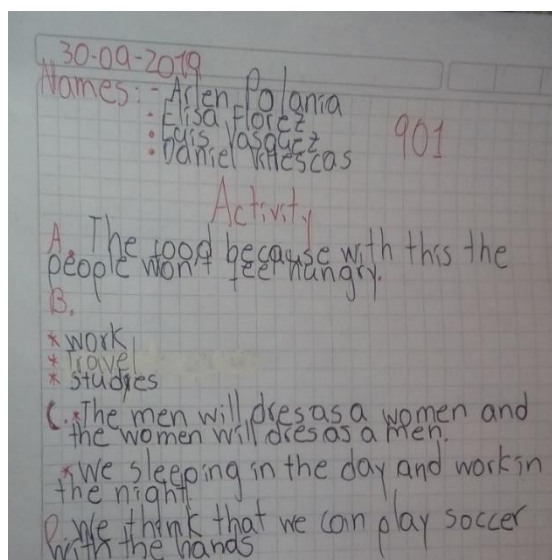 30-09-2019
Names: - Arlen Polania
· Elisa Florez
· Luis Vasquez
· Daniel Villescas
901
Activity
A. The food because with this the
people won't feel hungry.
B.
* work
* Travel
* studies
C. * The men will dres as a women and
the women will dres as a men.
* We sleeping in the day and work in
the night
D. We think that we can play soccer
with the hands